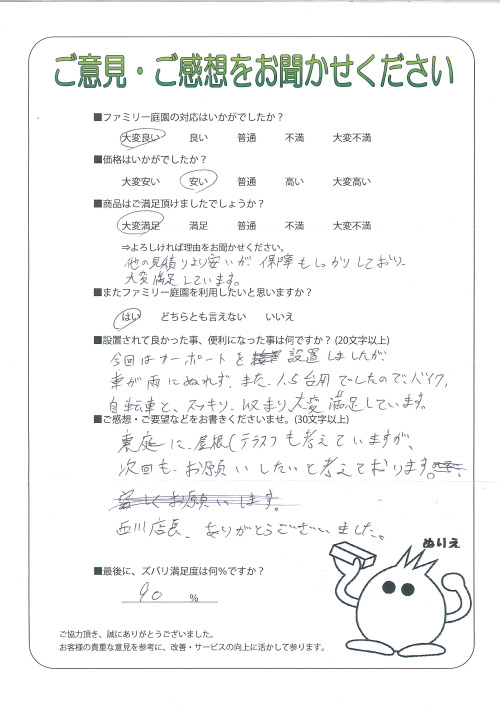 ご意見・ご感想をお聞かせください
■ファミリー庭園の対応はいかがでしたか？
大変良い 良い 普通 不満 大変不満
■価格はいかがでしたか？
大変安い 安い 普通 高い 大変高い
■商品はご満足頂けましたでしょうか？
大変満足 満足 普通 不満 大変不満
⇒よろしければ理由をお聞かせください。
他の見積りより安いが 保障もしっかりしており、
大変満足しています。
■またファミリー庭園を利用したいと思いますか？
はい どちらとも言えない いいえ
■設置されて良かった事、便利になった事は何ですか？(20文字以上)
今回はカーポートを 設置しましたが、
車が雨にぬれず、また、1.5台用でしたので、バイク、
自転車と、スッキリ、収まり、大変満足しています。
■ご感想・ご要望などをお書きくださいませ。(30文字以上)
裏庭に、屋根(テラス)も考えていますが、
次回も、お願いしたいと考えております。
宜しくお願いします。
西川店長、ありがとうございました。
ぬりえ
■最後に、ズバリ満足度は何％ですか？
90 ％
ご協力頂き、誠にありがとうございました。
お客様の貴重な意見を参考に、改善・サービスの向上に活かして参ります。